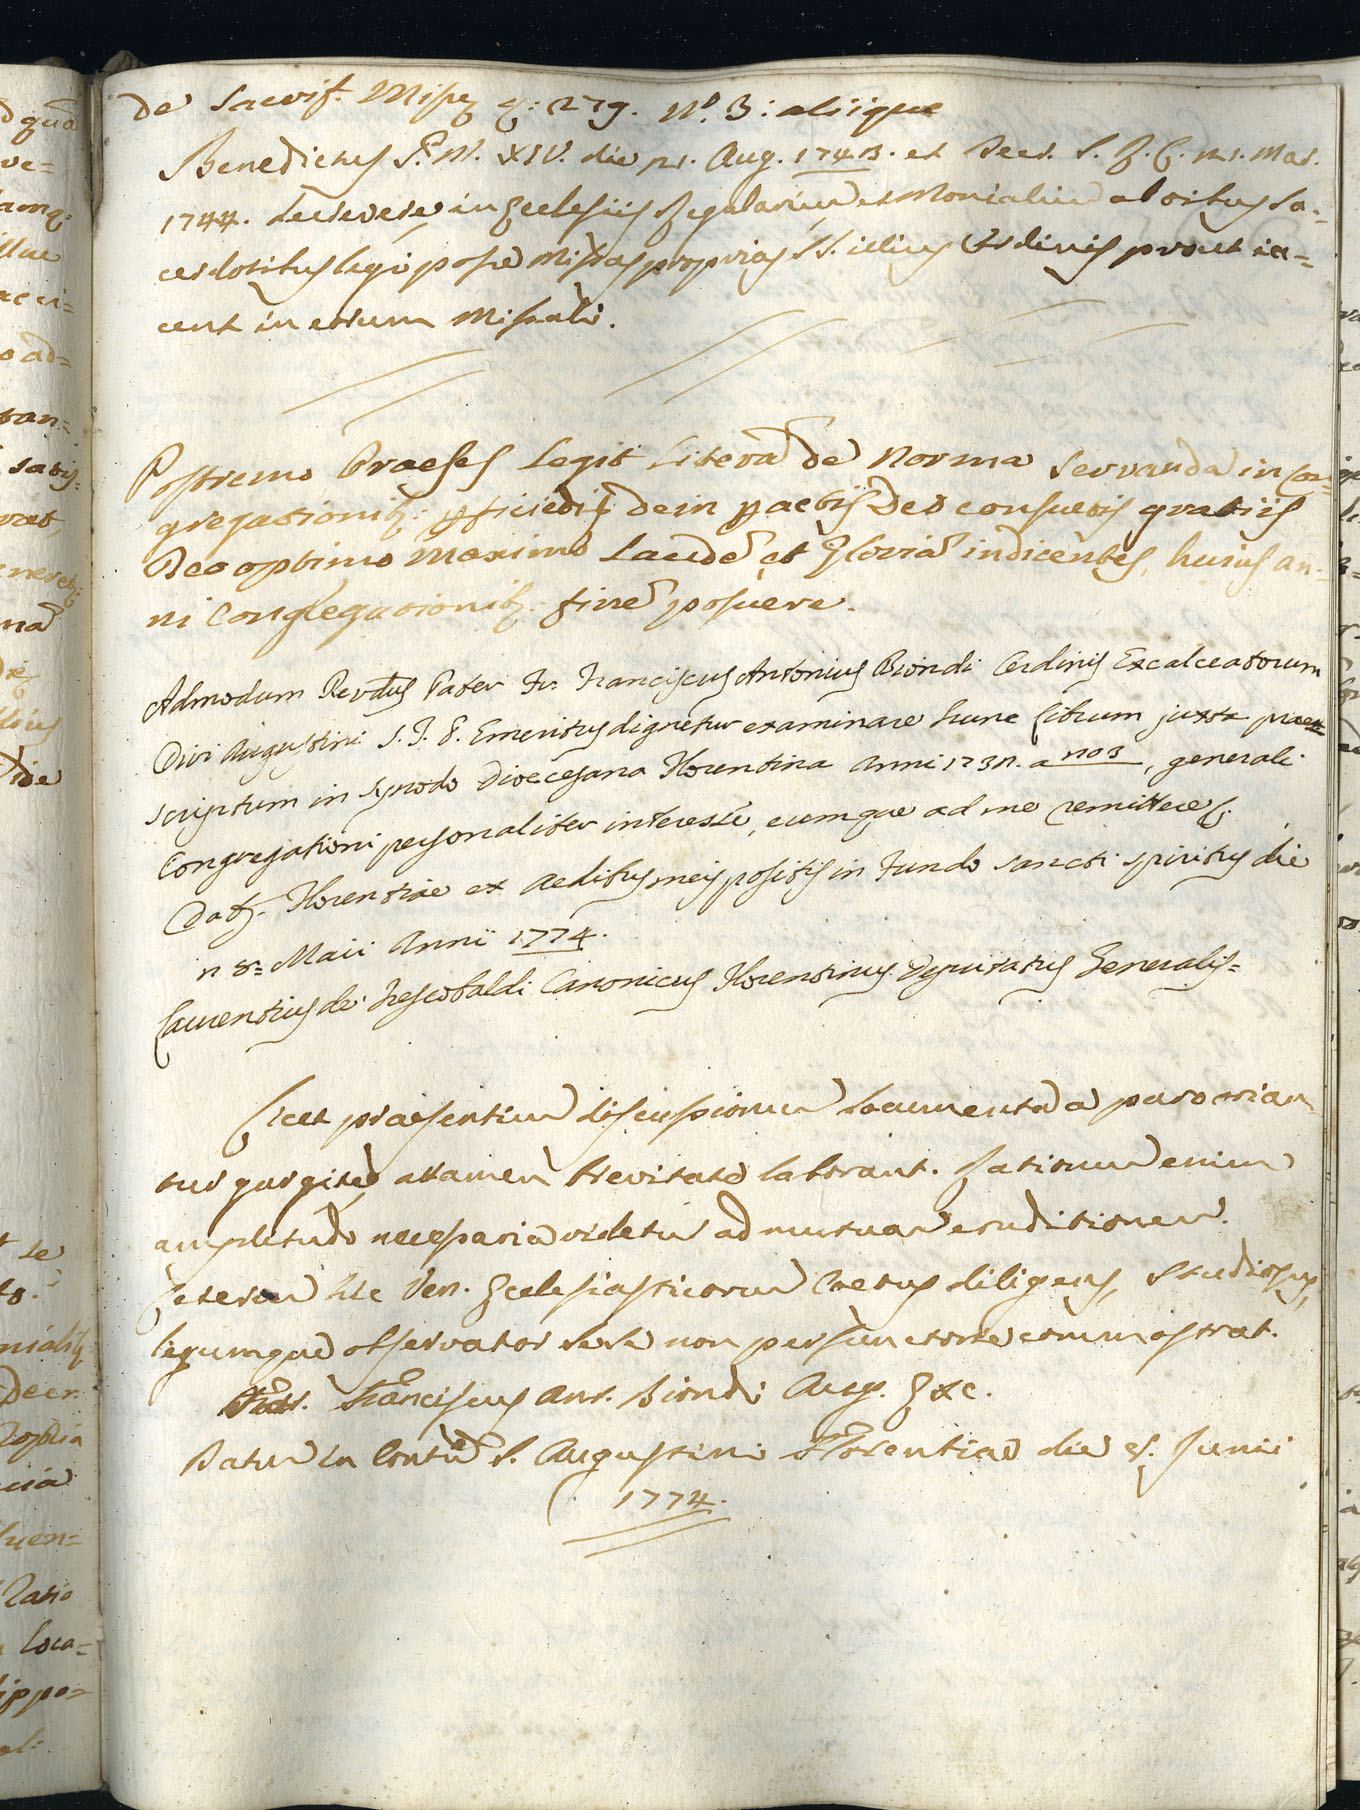 de Sacrif. Missę q: 279. N.º 3: aliique
Benedictus P. M. XIV. die 21. Aug. 1742. et Decr. S. R. C. 21. Mar.
1744. decrevere in Ecclesiis Regulariũ et Monialiũ ab oibus Sa-
cerdotibus legi posse Missas proprias SS. illius Ordinis prout ia=
cent in eorum Missali.
Postremo Praeses legit Literã de Norma servanda in Con=
gregationib; pficiẽdis dein pactis Deo consuetis gratiis
Deo optimo Maximo Laudẽ et Gloriã indicentes, huius an=
ni Congregationib; finẽ posuere.
Admodum Reṽdus Pater Fr. Franciscus Antonius Biondi Ordinis Excalceatorum
Divi Augustini S. T. P. Emeritus dignetur examinare hunc Librum juxta prae=
scriptum in Synodo Dioecesana Florentina Anni 1732. a nos, generali
Congregationi personaliter interesse, eumque ad me remittere.
Dat. Florentiae ex Aedibus meis positis in Fundo Sancti Spiritus die
28= Maii Anni 1774.
Laurentius de' Frescobaldi Canonicus Florentinus Deputatus Generalis=
Licet praesentiũ discussionum documenta a puro orian
tur gurgite, attamen brevitate laborant. Rationum enim
amplitudo necessaria videtur ad mutuam eruditionem.
Ceterum hic Ven. Ecclesiasticorum Coetus diligens, studiosus,
legumque observator sese non perfunctorie comm̃ostrat.
Franciscus Ant. Biondi Aug. Exc.
Datum in Convtũ S. Augustini Florentiae die 5. Junii
1774.